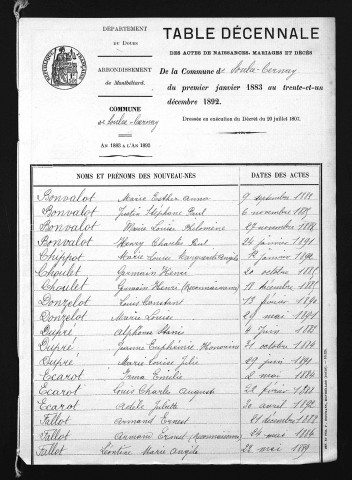 DÉPARTEMENT
DU DOUBS
ARRONDISSEMENT
de Montbéliard.
COMMUNE
de Soulce-Cernay
AN 1883 A L'AN 1892
TABLE DÉCENNALE
DES ACTES DE NAISSANCES, MARIAGES ET DÉCÈS
De la Commune de Soulce-Cernay
du premier janvier 1883 au trente-et-un
décembre 1892.
Dressée en exécution du Décret du 20 juillet 1807.
NOMS ET PRÉNOMS DES NOUVEAU-NÉS DATES DES ACTES
Bonvalot Marie Esther Anna 9 septembre
Bonvalot Justin Stéphane Paul 6 novembre
Bonvalot Marie Louise Philomène 27 novembre
Bonvalot Henry Charles Paul 24 janvier 1891
Chippot Marie Louise Marguerite Angèle janvier
Choulet Germain Henri 20 octobre
Choulet Germain Henri (Reconnaissance) 18 décembre
Donzelot Louis Constant 13 février
Donzelot Marie Louise 29 mai 1891
Dupré Alphonse 4 juin
Dupré Jeanne Euphémie Honorine 31 octobre 1884
Dupré Marie Louise Julie 29 juin
Ecarot Irma Emilie 2 mai 1884
Ecarot Louis Charles Auguste 22 février
Ecarot Adèle Juliette 30 avril 1892
Fallot Armand Ernest 21 décembre
Fallot Armand Ernest (Reconnaissance) 24 mars 1884
Fallot Léontine Marie Angèle 22 mai 1889